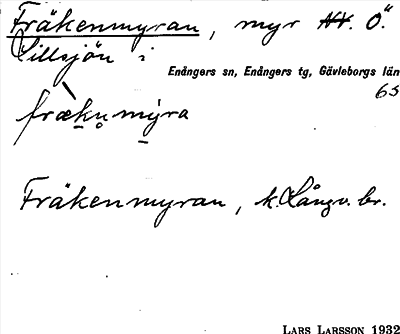 Fräkenmyran, myr N.V. Ö.
Lillsjön i
Enångers sn, Enångers tg, Gävleborgs län
63
frækn̥mýra
Fräkenmyran, k. Långv. br.
LARS LARSSON 1932